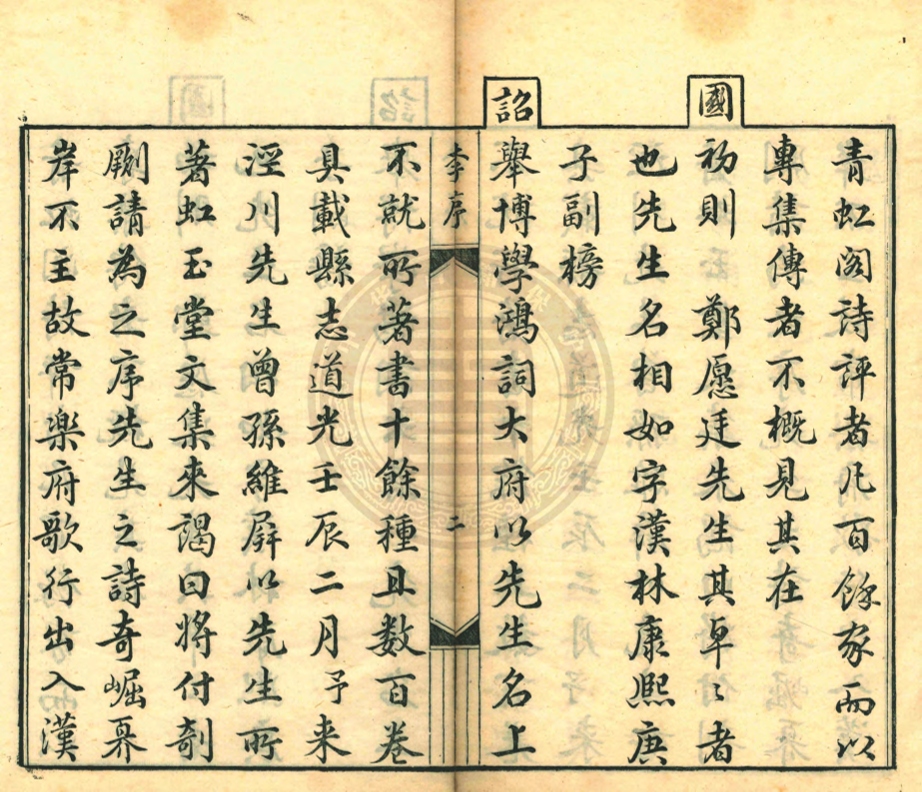 青虹閣詩評者凡百餘家而以
專集傳者不概見其在
國
初則　鄭愿廷先生其卓〻者
也先生名相如字漢林康熙庚
子副榜
詔
舉博學鴻詞大府以先生名上
李序
二
不就所著書十餘種且數百卷
具載縣志道光壬辰二月予来
涇川先生曾孫維屏以先生所
著虹玉堂文集來謁曰將付剞
劂請為之序先生之詩奇崛奡
岸不主故常樂府歌行出入漢